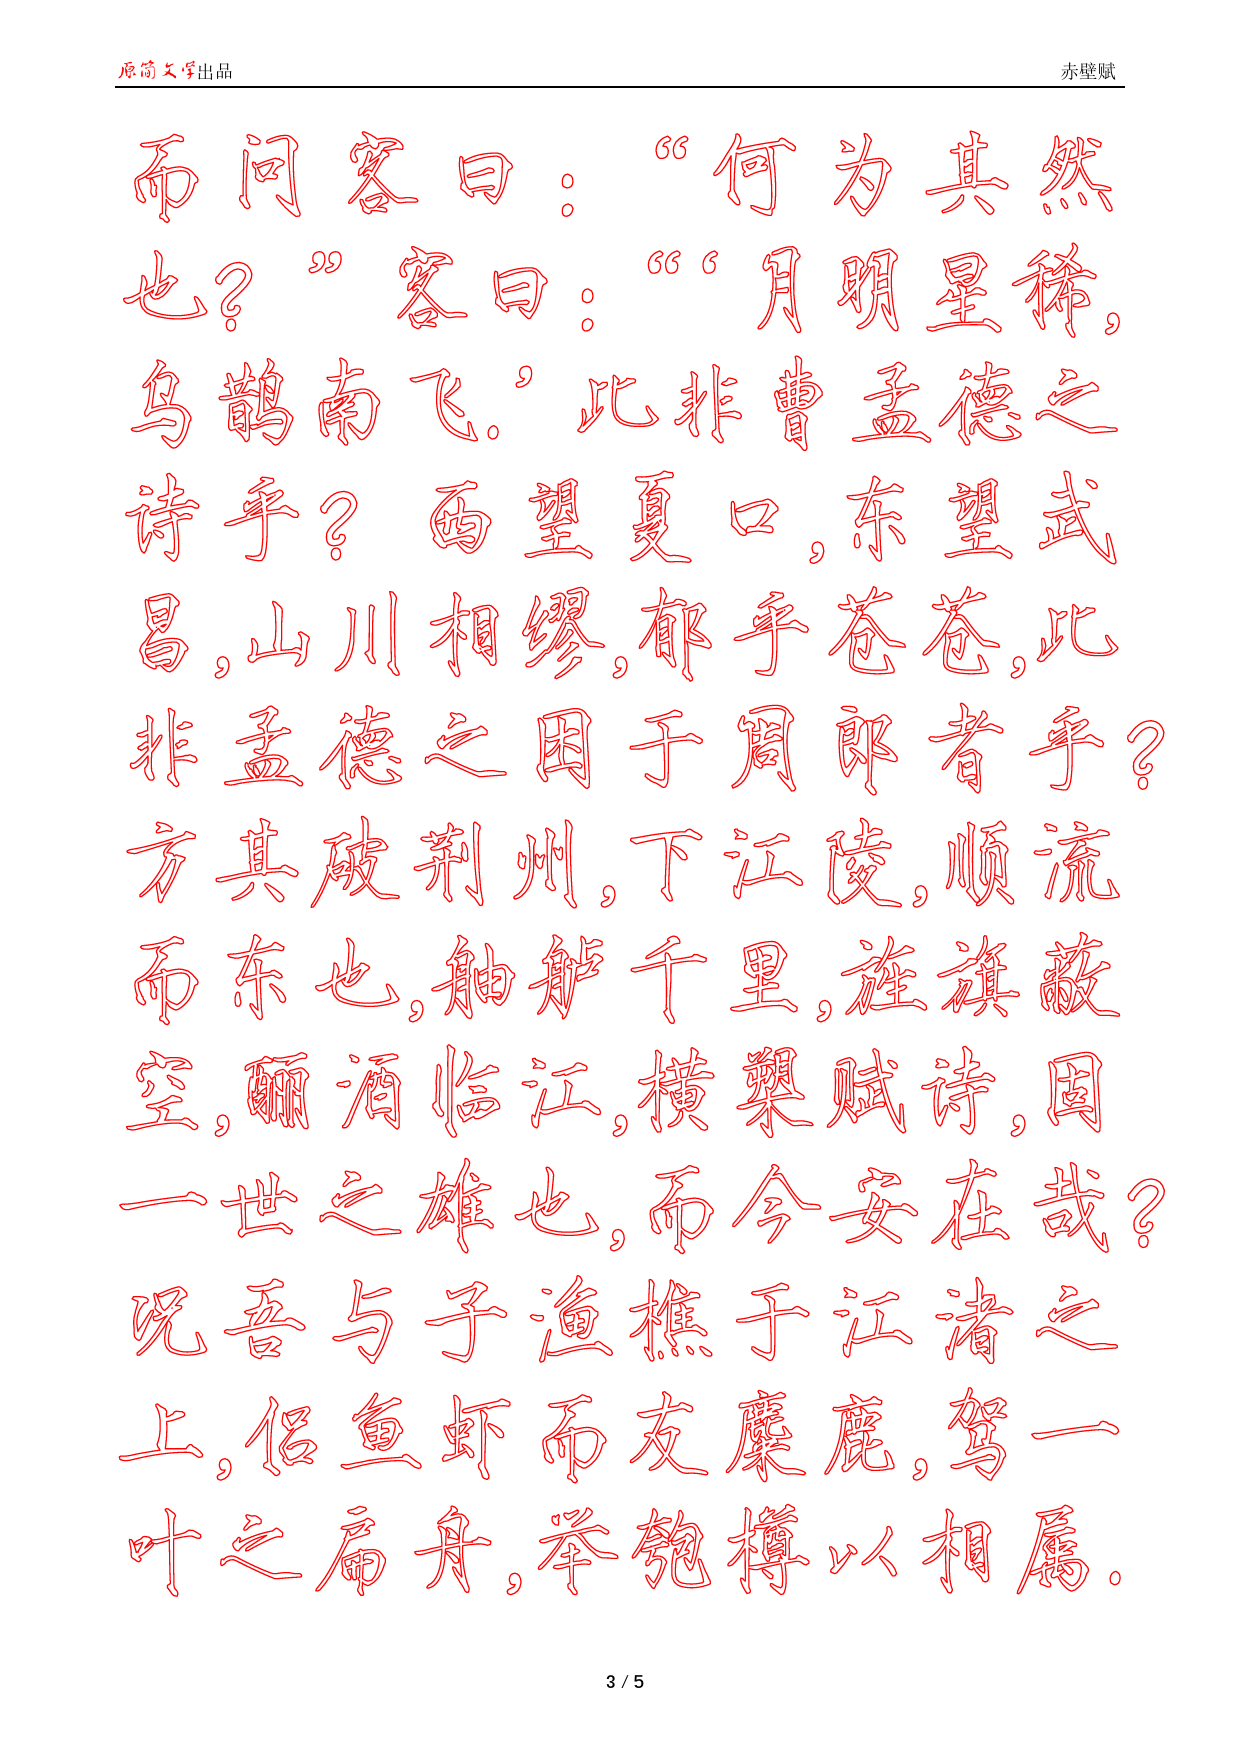 原简文学出品 赤壁赋
而问客曰:“何为其然
也?”客曰:“‘月明星稀,
乌鹊南飞.’此非曹孟德之
诗乎?西望夏口,东望武
昌,山川相缪,郁乎苍苍,此
非孟德之困于周郎者乎?
方其破荆州,下江陵,顺流
而东也,舳舻千里,旌旗蔽
空,酾酒临江,横槊赋诗,固
一世之雄也,而今安在哉?
况吾与子渔樵于江渚之
上,侣鱼虾而友麋鹿,驾一
叶之扁舟,举匏樽以相属.
3 / 5